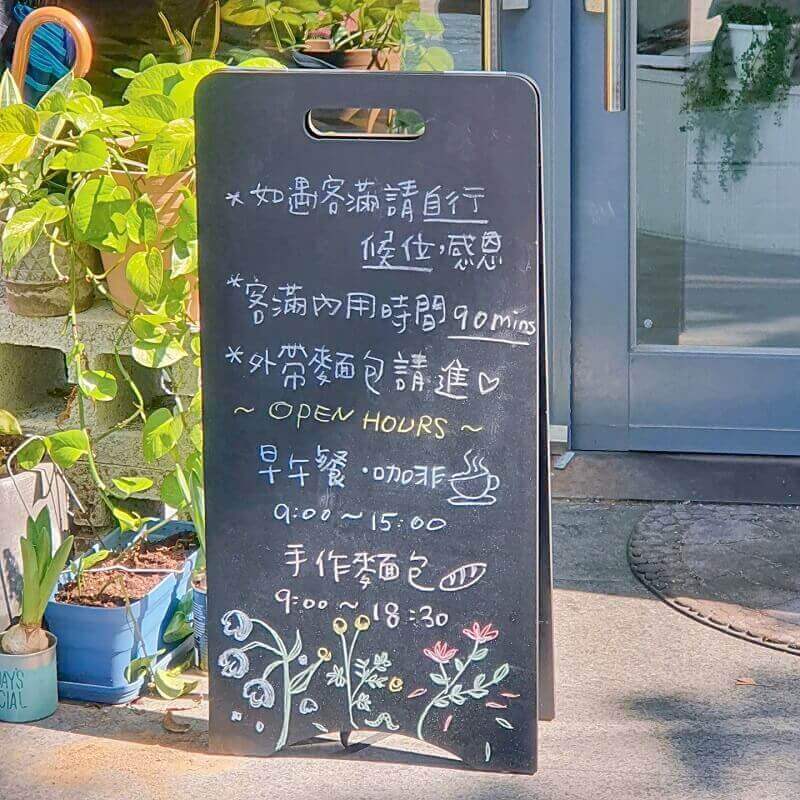 *如遇客滿請自行
候位,感恩
*客滿內用時間90mins
*外帶麵包請進♡
~ OPEN HOURS ~
早午餐·咖啡
9:00~15:00
手作麵包
9:00~18:30